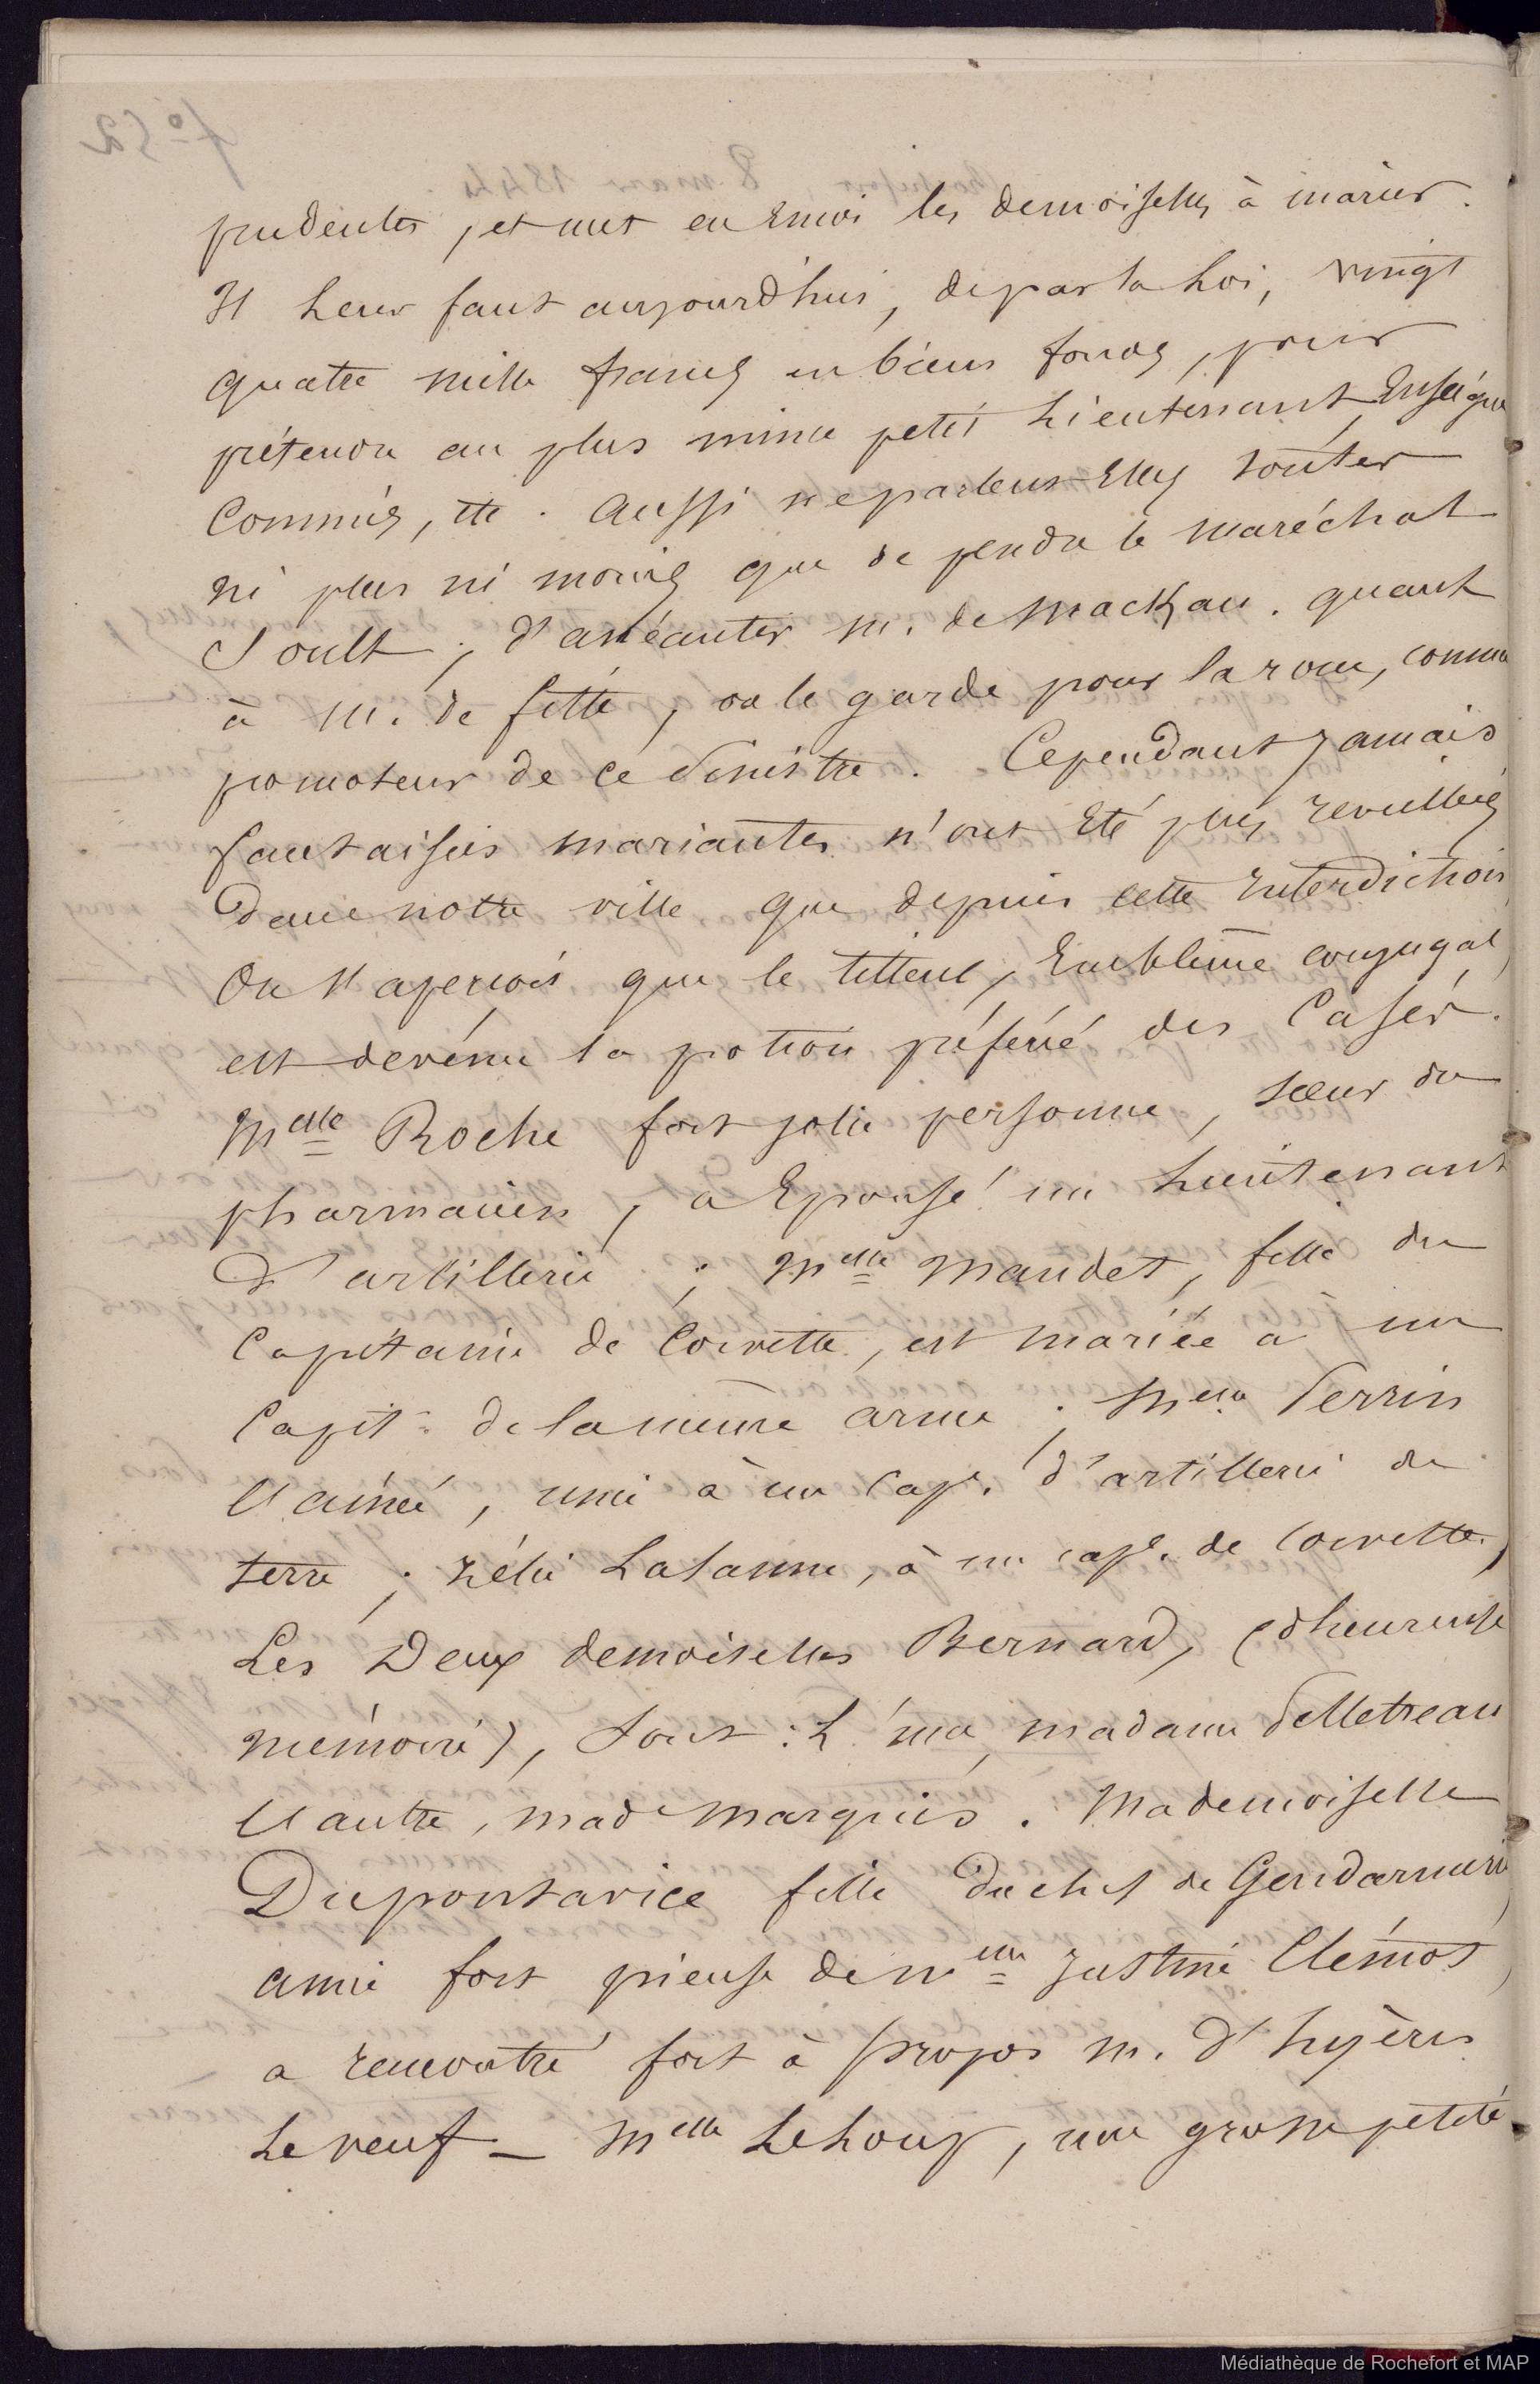 prudentes, et met en Emoi les demoiselles à marier.
Il leur faut aujourd'hui, de par la Loi, vingt
quatre mille francs en biens fonds, pour
prétendre au plus mince petit Lieutenant, Enseigne
Commis, etc. Aussi ne parlent-Elles toutes
ni plus ni moins que de pendre le maréchal
Soult ; d'anéantir M. de Mackau. quant
à M. de fitte, on le garde pour la roue, comme
promoteur de ce Sinistre. Cependant jamais
fantaisies mariantes n'ont Eté plus reveillées
Dans notre ville que depuis cette Interdiction
On s'aperçoit que le tilleul, Emblême conjugal,
est devénu la potion préférée des Caser.
Melle Roche fort jolie personne, soeur du
pharmacien, a Epousé un Lieutenant
D'artillerie ; Melle Mandet, fille du
Capitaine de Corvette, est mariée à un
Capit. de la même arme ; Melle Perrin
l'ainée, unie à un Cap. d'artillerie de
terre ; Zélie Lalanne, à un cap. de Corvette,
Les Deux demoiselles Bernard, (d'heureuse
mémoire), Sont : L'une, madame Pelletreau
l'autre, made Marquis. Mademoiselle
Dupontavice fille du chef de Gendarmerie
amie fort pieuse de Melle Justine Clémot,
a rencontré fort à propos M. d'hyères
Le veuf _ Melle Lehoux, une grosse petite
Médiathèque de Rochefort et MAP